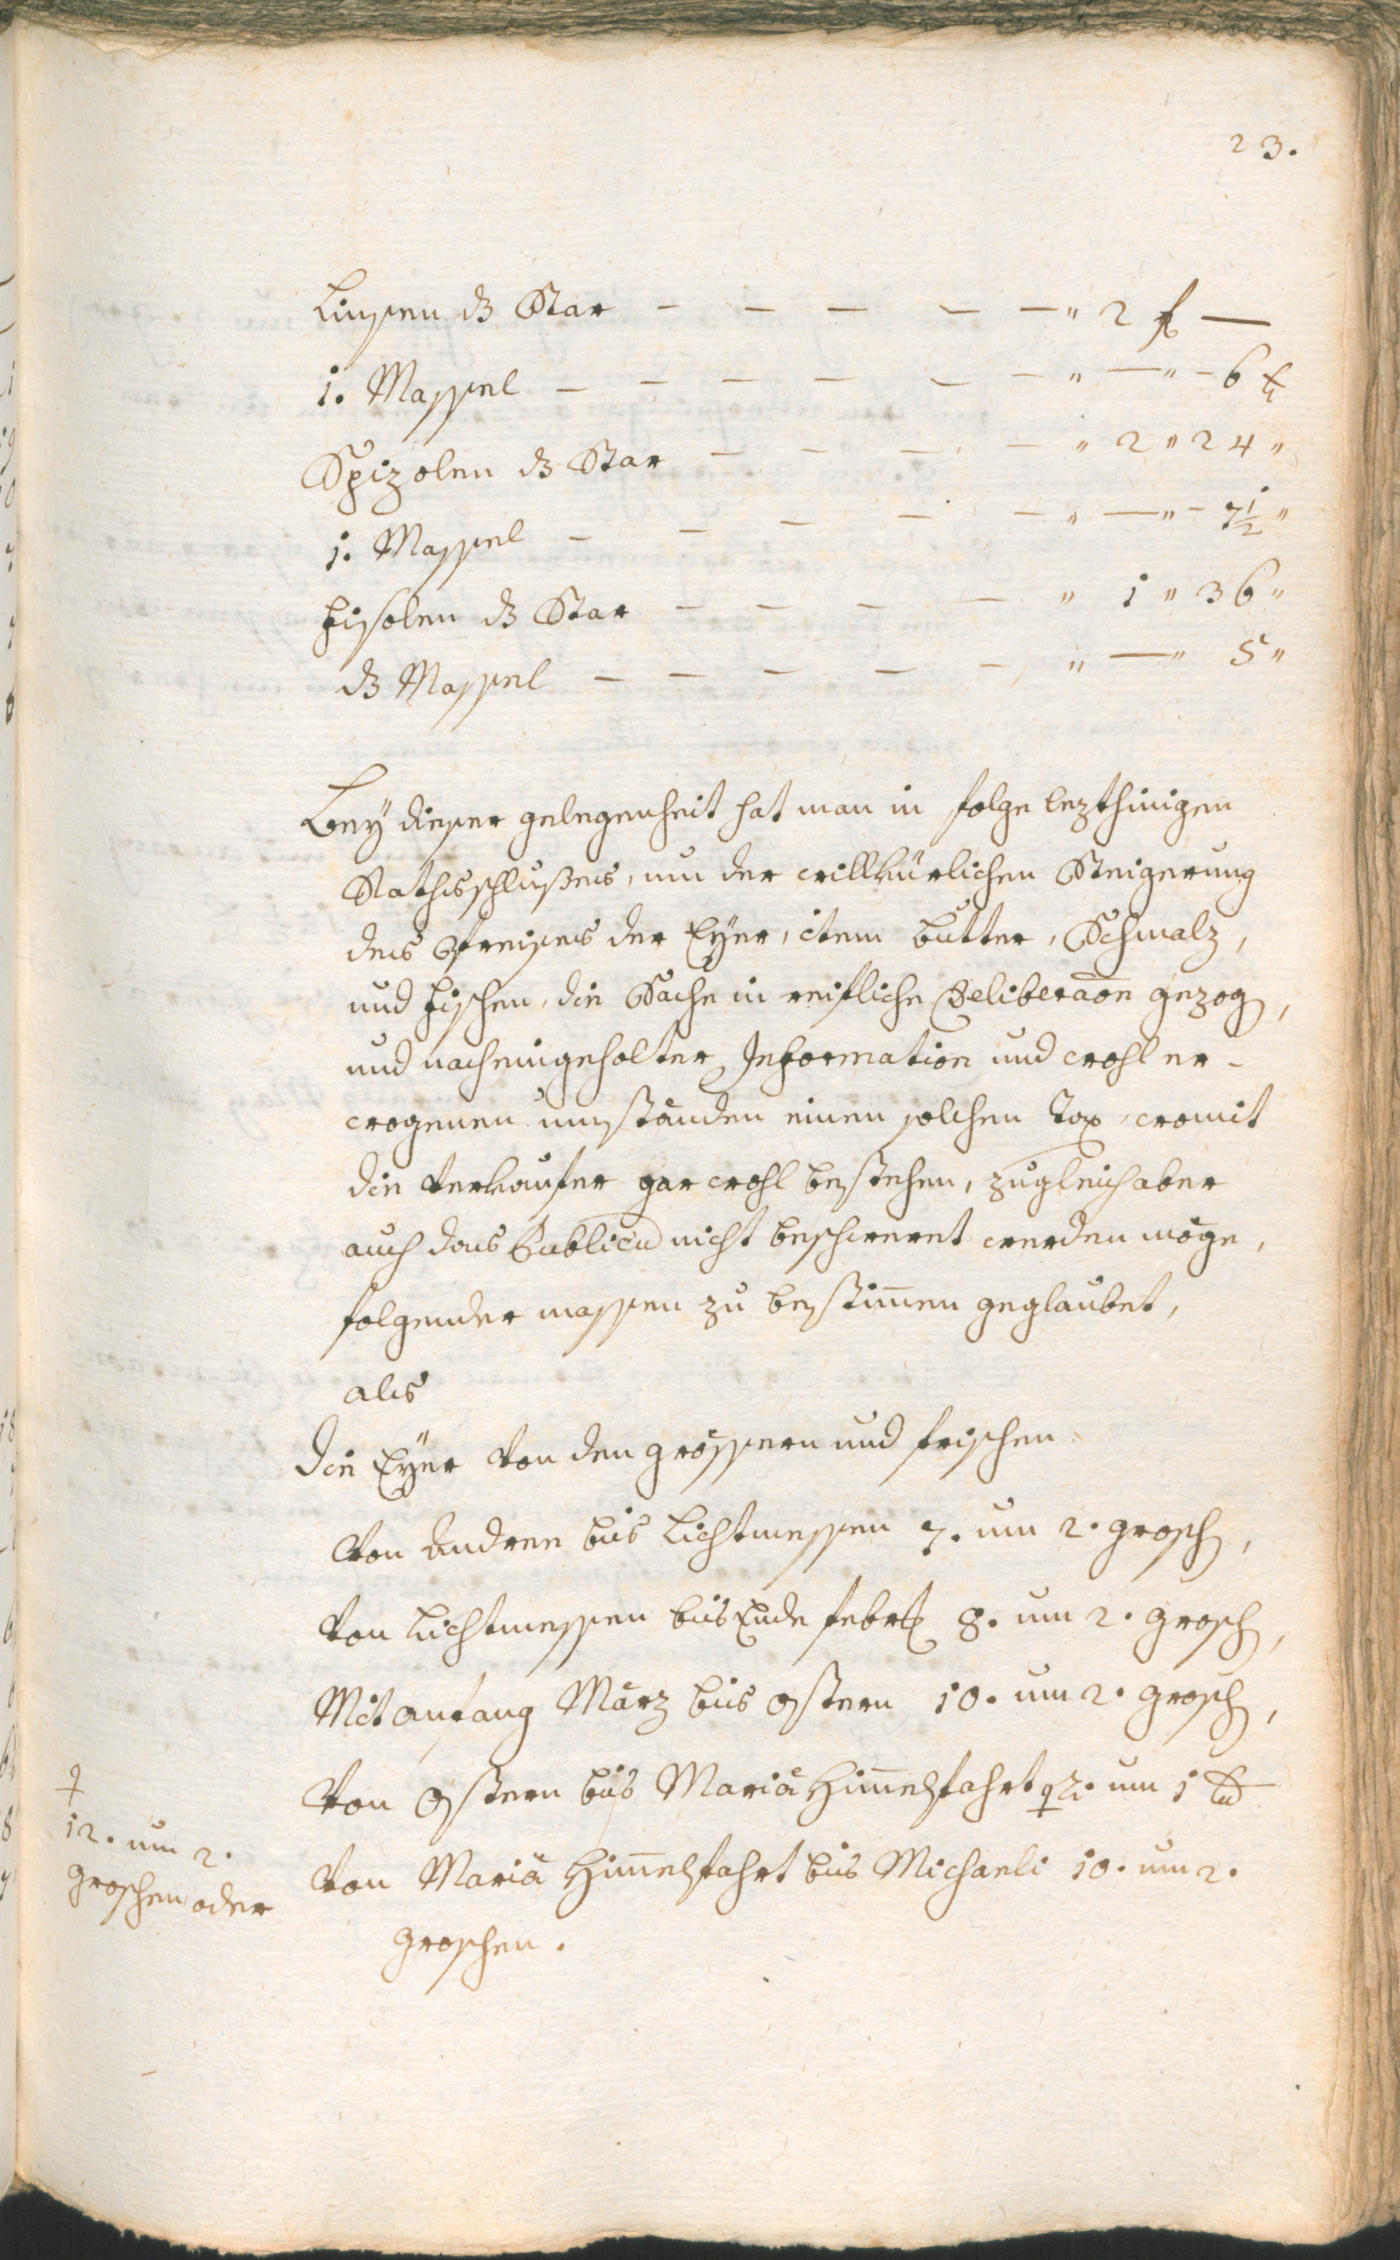 23.
Linsen dz Star — — — — — " 2 f —
1. Massel — — — — — — " — " - 6 x
Spizolen dz Star — — — — " 2 " 24 "
1. Massel — — — — — " — " - 7 1/2 "
Fisolen dz Star — — — — " 1 " 36 "
dz Massel — — — — — " — " 5 "
Bey dieser gelegenheit hat man in folge lezthinigen
Rathsschlußes, um der willkürlichen Steigerung
des Preises der Eÿer, item butter, Schmalz,
und fischen, die Sache in reifliche Deliberaõn gezog,
und nach eingeholter Information und wohl er-
wogenen umständen einen solchen Tax, womit
die verkaufer gar wohl bestehen, zugleich aber
auch das Publicu nicht beschweret werden möge,
folgender massen zu bestim̅en geglaubet,
als
die Eÿer von den grössern und frischen
von Andree bis Lichtmessen 7. um 2. grosch,
von Lichtmessen bis Ende febr 8. um 2. grosch,
Mit anfang März bis ostern 10. um 2. grosch,
von ostern bis Mariä Him̅elfahrt 2. um 1
12. um 2.
groschen oder
von Mariä Him̅elfahrt bis Michaeli 10. um 2.
groschen.